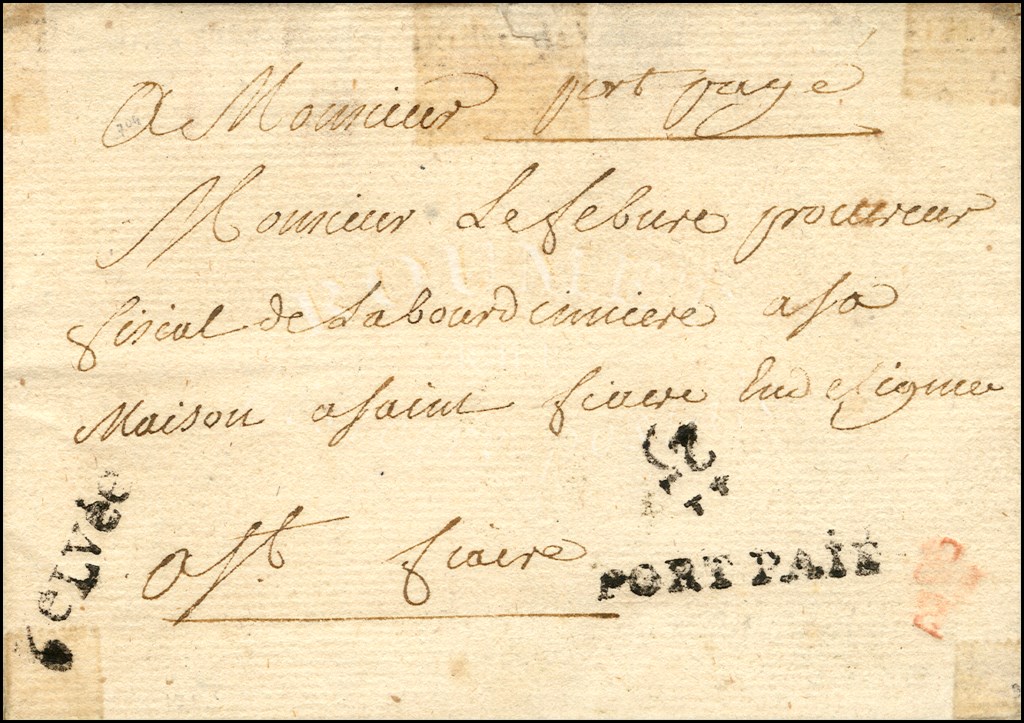 A Monsieur port payé
Monsieur Lefebure procureur
fiscal de Labourdinniere a sa
Maison a saint fiacre
a St. fiacre
PORT PAIÉ
5e LVéE